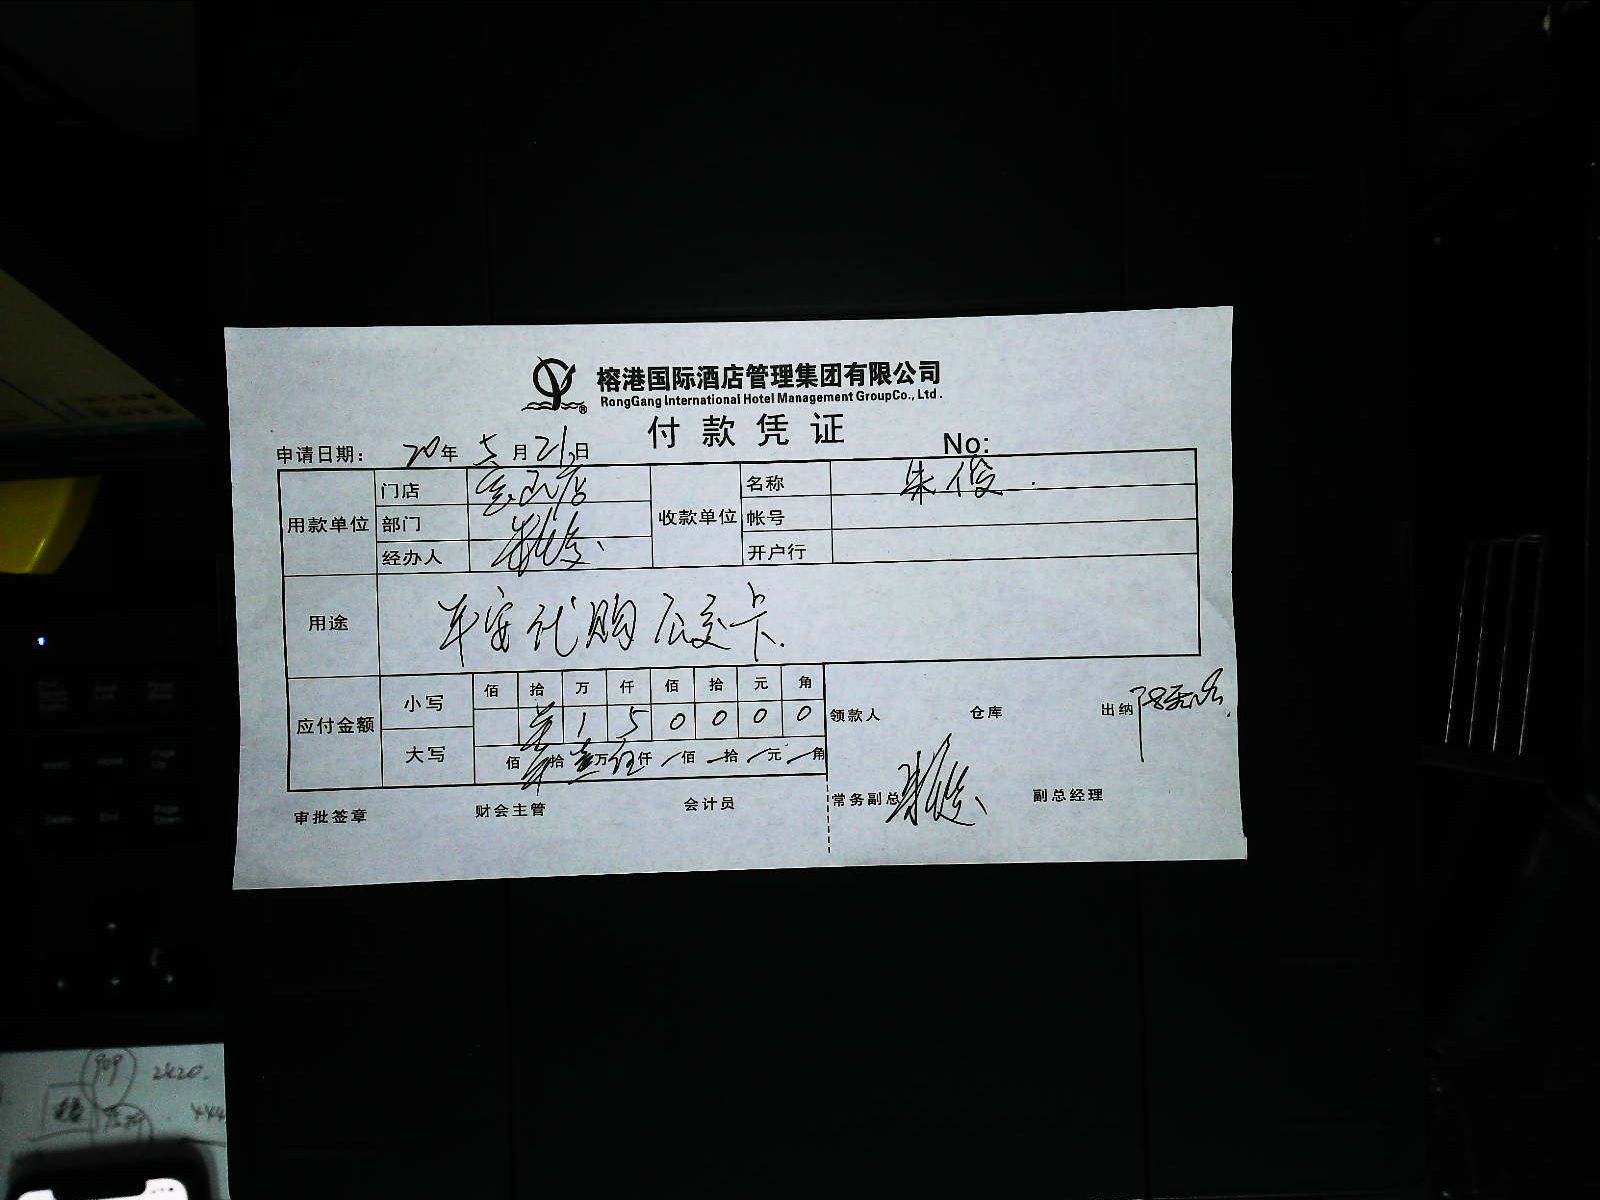 榕港国际酒店管理集团有限公司
RongGang International Hotel Management GroupCo., Ltd.
付款凭证
申请日期: 20年5月21日 No:
用款单位 门店 宝山店 收款单位 名称 朱俊
部门 帐号
经办人 朱俊 开户行
用途 平安代购 卡
应付金额 小写 佰 拾 万 仟 佰 拾 元 角
1 5 0 0 0 0
大写 佰 拾 壹万 伍仟 佰 拾 元 角
领款人 仓库 出纳
审批签章 财会主管 会计员 常务副总 朱俊 副总经理
2420.